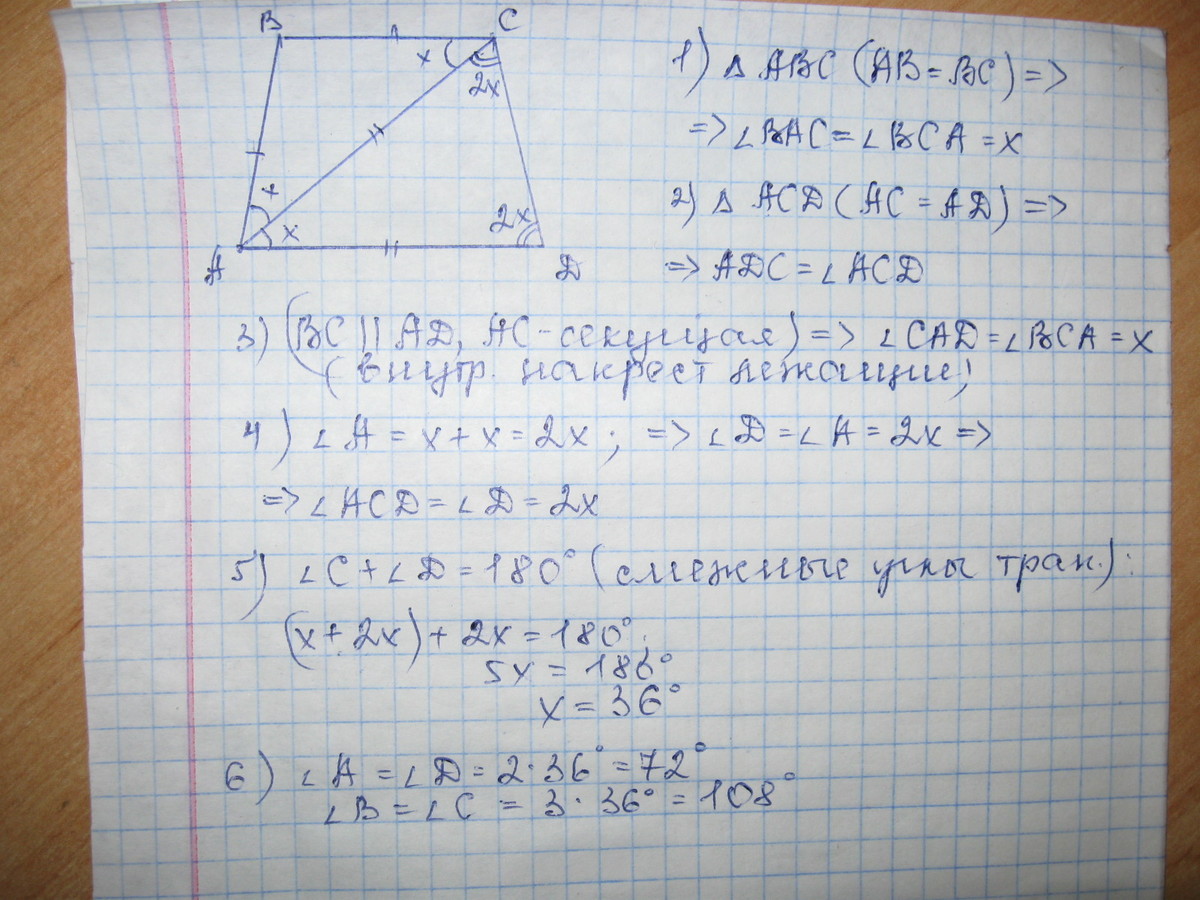 B C
x 2x
x
x 2x
A D
1) Δ ABC (AB = BC) =>
=> ∠BAC = ∠BCA = x
2) Δ ACD (AC = AD) =>
=> ADC = ∠ACD
3) (BC || AD, AC - секущая) => ∠CAD = ∠BCA = x
(внутр. накрест лежащие)
4) ∠A = x + x = 2x ; => ∠D = ∠A = 2x =>
=> ∠ACD = ∠D = 2x
5) ∠C + ∠D = 180° (смежные углы трап.):
(x + 2x) + 2x = 180°
5x = 180°
x = 36°
6) ∠A = ∠D = 2·36° = 72°
∠B = ∠C = 3·36° = 108°